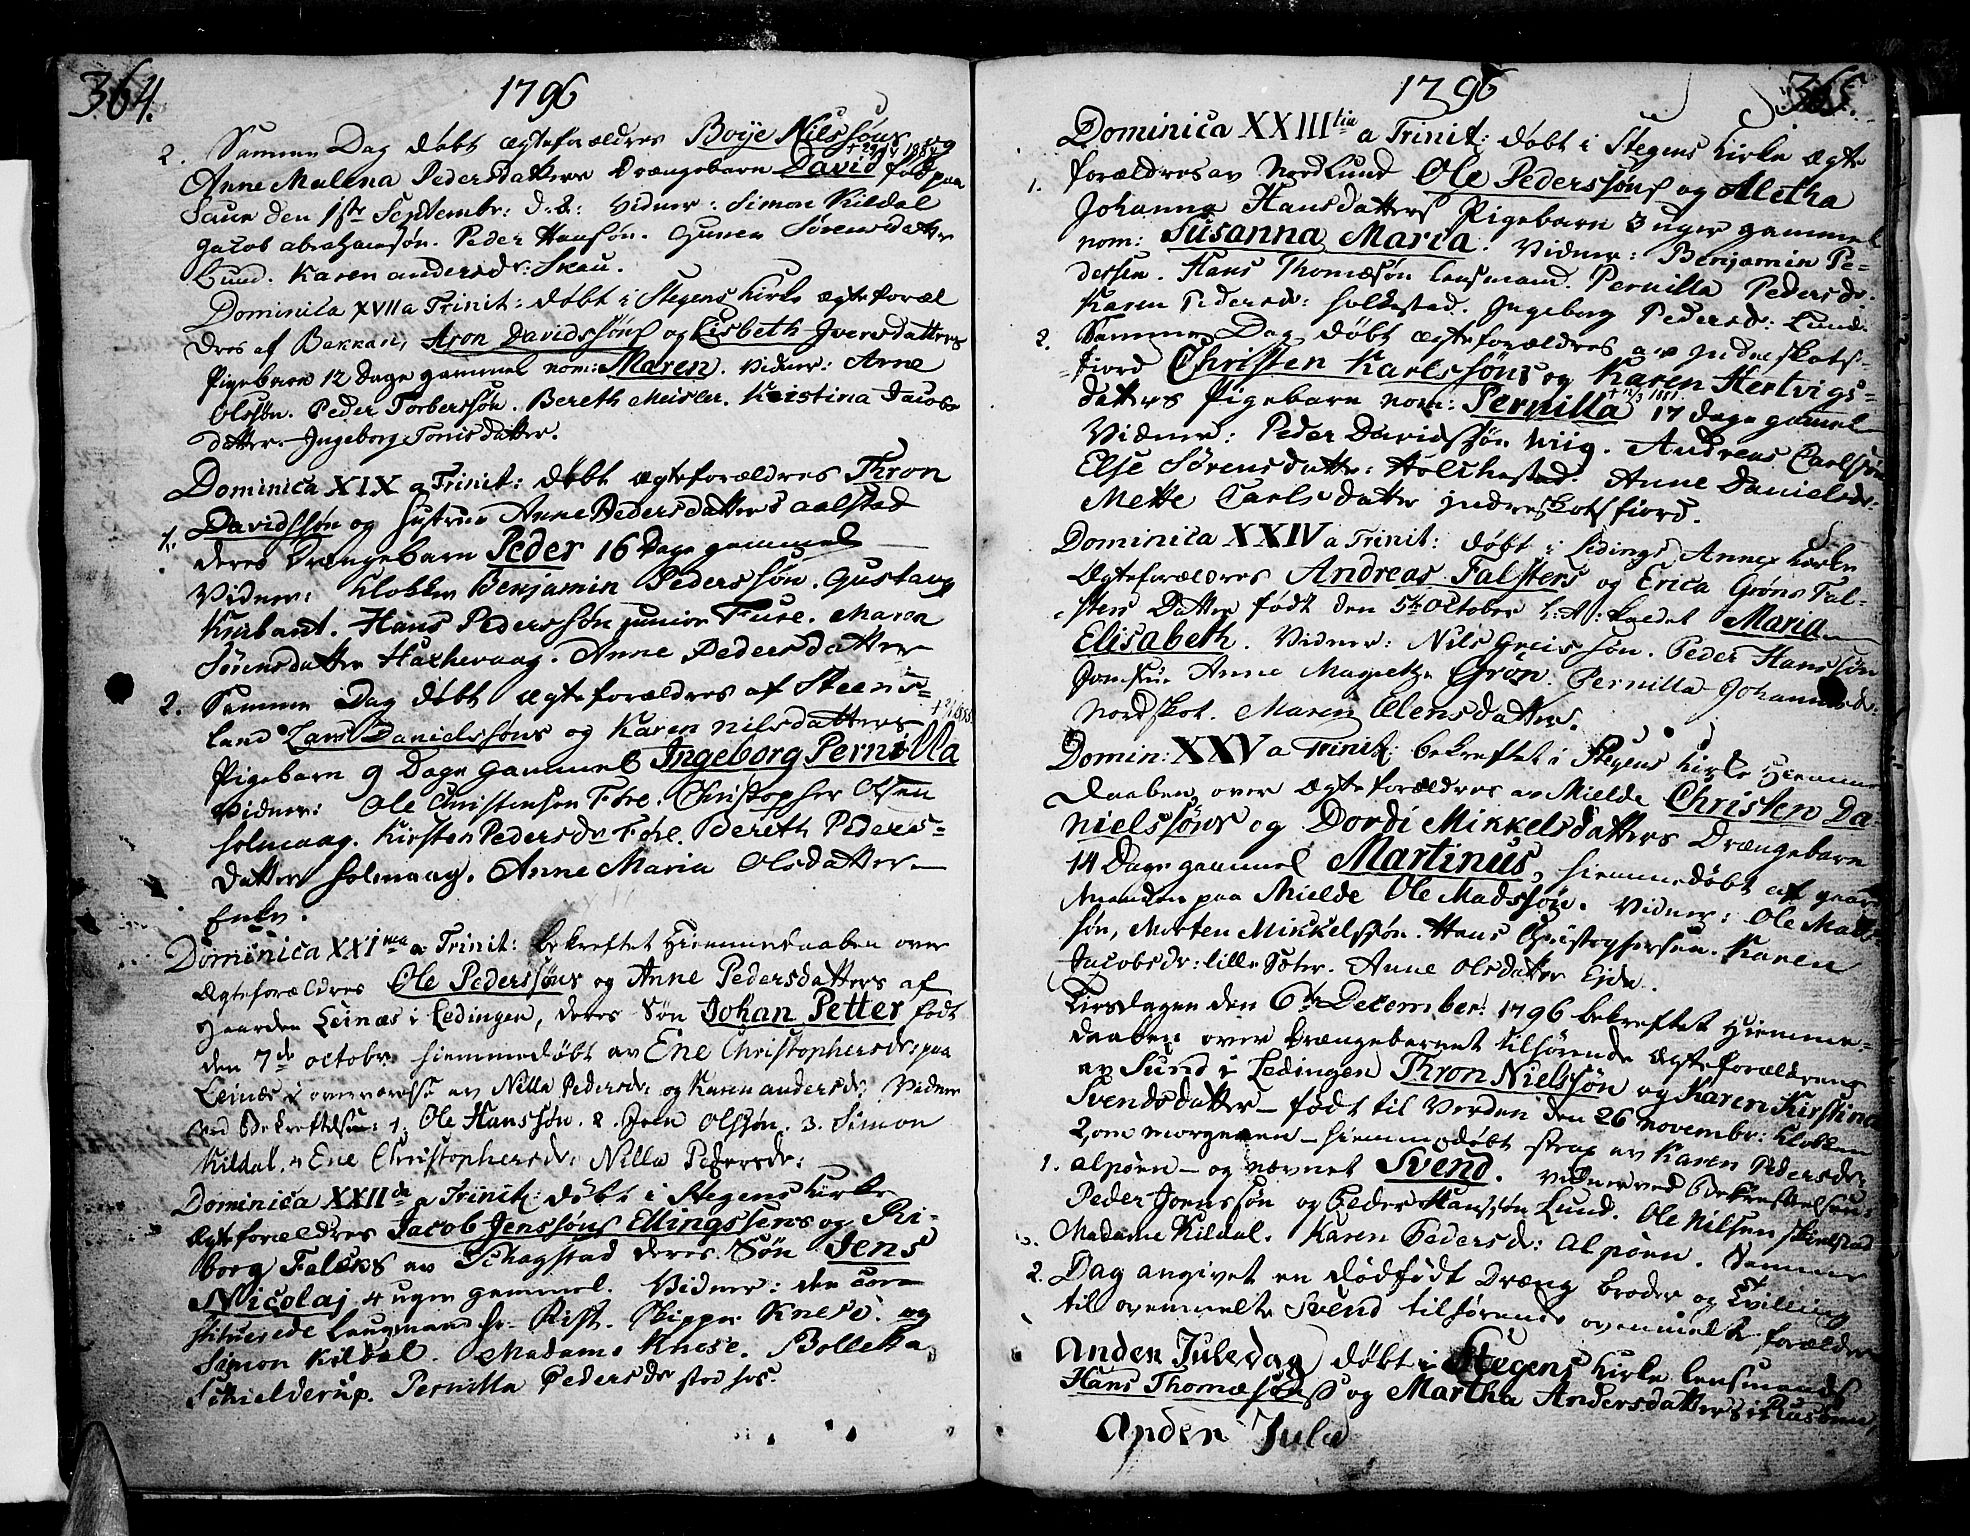 364.
1796
2. Samme Dag døbt ægteforældres Boye Nilssøns og
Anne Malena Pedersdatters Drængebarn David født paa
Saur den 1ste Septembr: d: Vidner: Simon Kildal
Jacob abrahamsøn. Peder Hansøn. Gunen Sørensdatter
Lund. Karen andersdr: Skau.
Dominica XVII a Trinit: døbt i Stegens Kirke ægteforæl
dres af Bakkan, Aron Davidssøns og Lisbeth Iversdatters
Pigebarn 12 Dage gammel nom: Maren. Vidner: Arne
Olssøn. Peder Torberssøn. Bereth Meisler. Kristina Jacobs
datter. Ingeborg Tonisdatter.
Dominica XIX a Trinit: døbt ægteforældres Thron
1. Davidssøn og hustrue Anne Pedersdatters aalstad
deres Drængebarn Peder 16 Dage gammel
Vidner: Klokker Benjamin Pederssøn. Gustav
Krabant. Hans Pederssøn junior Fure. Maren
Sørensdatter Haxhevaag. Anne Pedersdatter
2. Samme Dag døbt ægteforældres af Steens-
land Lars Danielssøns og Karen Nilsdatters
Pigebarn 9 Dage gammel Ingeborg Pernilla
Vidner: Ole Christensen Fhre. Christopher Olsen
holmaag. Kirsten Pedersdr Fhre. Bereth Peders-
datter holmaag. Anne Maria Olsdatter
Enke.
Dominica XXIma a Trinit: bekreftet Hiemmedaaben over
ægteforældres Ole Pederssøns og Anne Pedersdatters af
gaarden Leinæs i Ledingen, deres Søn Johan Petter født
den 7de octobr: hiemmedøbt av Ene Christophersdr: paa
Leinæs i overværelse av Nilla Pedersdr: og Karen andersdr: Vidner
ved Bekreftelsen: 1. Ole Hanssøn. 2. Jon Olssøn. 3. Simon
Kildal. 4 Ene Christophersdr: Nilla Pedersdr:
Dominica XXIIda a Trinit: døbt i Stegens Kirke
ægteforældres Jacob Jenssøns Ellingssens og Ri-
borg Falcks av Schagstad deres Søn Jens
Nicolaj 4 uger gammel. Vidner: den con
stituerede Laugmand hr. Rist. Skipper Knese. og
Simon Kildal. Madame Knese. Bolletta
Schielderup. Pernilla Pedersdr stod hos.
1796
365.
Dominica XXIIItia a Trinit: døbt i Stegens Kirke ægte
1. forældres av Nordlund Ole Pederssøns og Aletha
Johanna Hansdatters Pigebarn 3 uger gammel
nom: Susanna Maria. Vidner: Benjamin Pe-
dersen. Hans Thomæsøn Lensmand. Pernilla Pedersdr.
Karen Pedersdr: holkestad. Ingeborg Pedersd: Lund.
2. Samme Dag døbt ægteforældres av Indreskots-
fiord Christen Karlssøns og Karen Hertvigs-
datters Pigebarn nom: Pernilla 17 Dage gammel
Vidner: Peder Davidssøn Wiig. Andreas Carlssøn
Else Sørensdatter: Holchestad. Anne Danielsdr:
Mette Carlsdatter Indreskotsfiord.
Dominica XXIV a Trinit: døbt i Ledings Annex Kirke
Ægteforældres Andreas Falsters og Erica Grøns Fal-
sters Datter født den 5te October h: A: kaldet Maria
Elisabeth. Vidner: Nils Greissøn. Peder Hanssøn
Jomfrue Anne Magretha Grøn. Pernilla Johannesdr:
Nordskot. Maren Olensdatter.
Domin: XXV a Trinit: bekreftet i Stegens Kirke Hiemme
daaben over ægteforældres av Mielde Christen Da-
nielssøns og Dordi Mikkelsdatters Drængebarn
14 Dage gammel Martinus, hiemmedøbt af gaard
manden paa Mielde Ole Madssøn. Vidner: Ole Mads-
søn, Morten Mikkelssøn. Hans Christophersen. Karen
Jacobsdr: lille Soter. Anne Olsdatter Eide.
Tirsdagen den 6te December: 1796 bekreftet Hiemme-
daaben over Drængebarnet tilhørende ægteforældrene
av Sund i Ledingen Thron Nielssøn og Karen Kirstina
Svendsdatter – født til Verden den 26 novembr: Klokken
2, om morgenen – hiemmedøbt strax av Karen Pedersdr:
1. alpøen – og nævnet Svend. Vidner ved Bekreftelsen:
Peder Jonssøn og Peder Hanssøn Lund. Ole Nilsen skielstad
Madame Kildal. Karen Pedersdr: alpøen. Samme
2. Dag angivet en dødfødt Dræng broder og Tvilling
til ovenmelte Svend tilhørende ovenmelte forældre
Anden Juledag døbt i Stegens Kirke Lensmands
Hans Thomæsøns og Martha Andersdatters i
Anden Jule